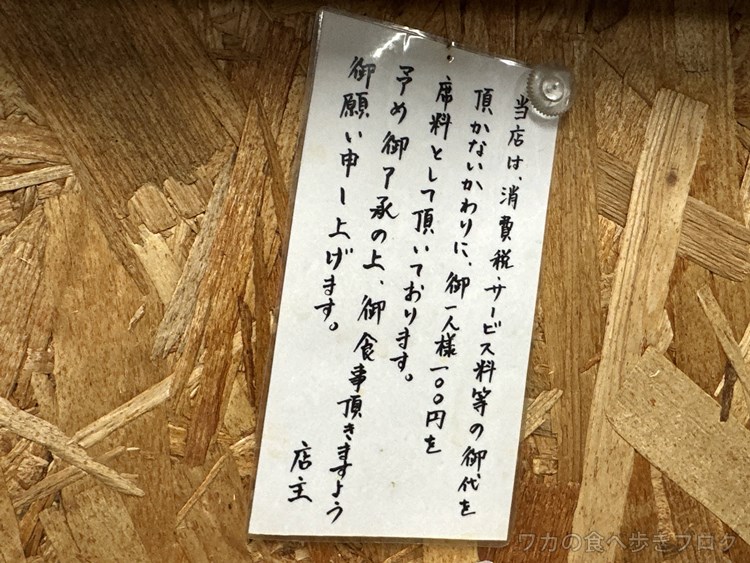 当店は、消費税・サービス料等の御代を
頂かないかわりに、御一人様一〇〇円を
席料として頂いております。
予め御了承の上、御食事頂きますよう
御願い申し上げます。
店主
ワカの食べ歩きブログ